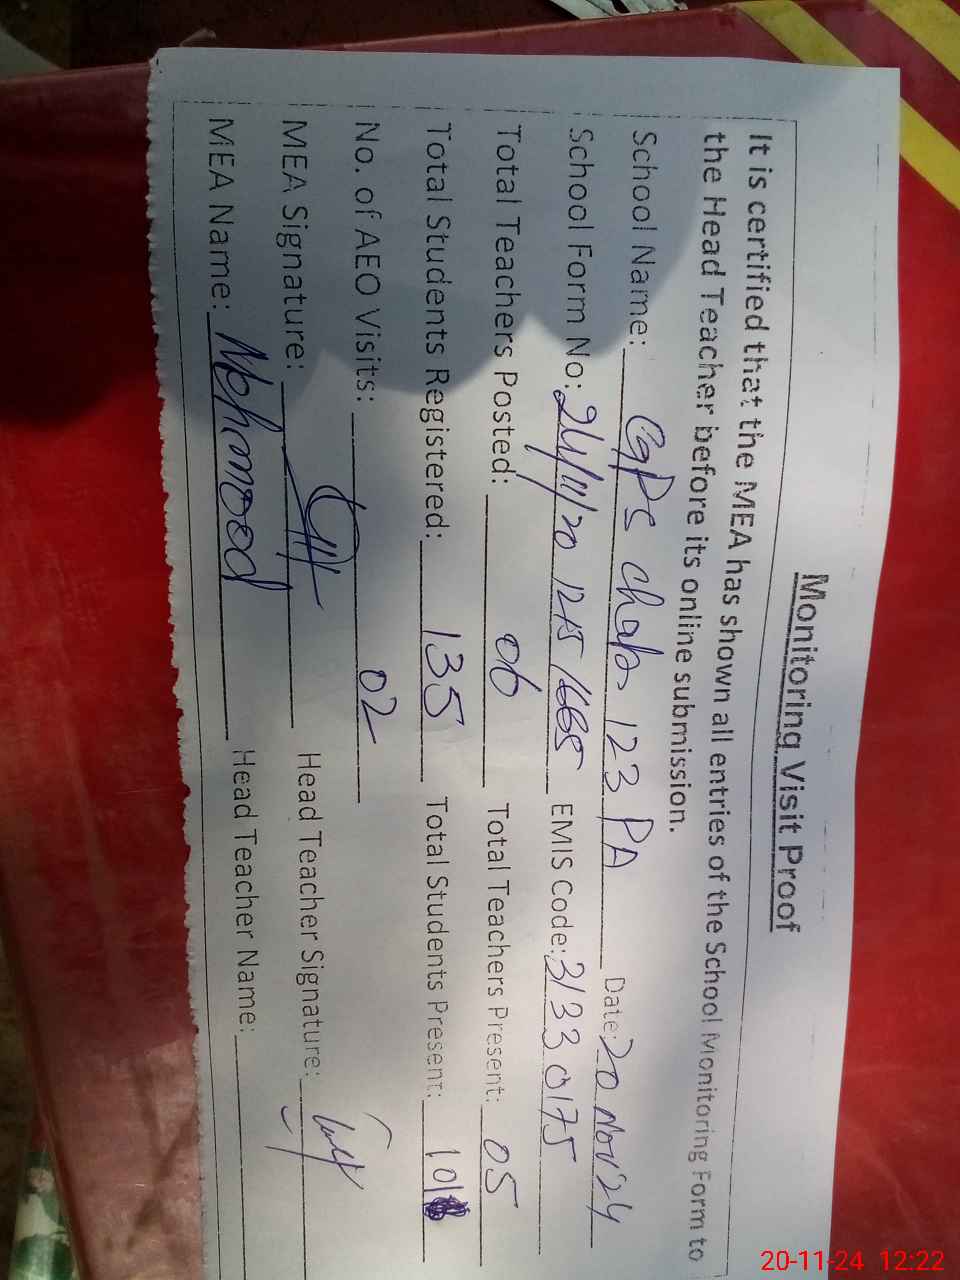 Monitoring Visit Proof
It is certified that the MEA has shown all entries of the School Monitoring Form to
the Head Teacher before its online submission.
School Name: GGPS chak 123 PA Date: 20 Nov 24
School Form No: 24/11/20 1215 1665 EMIS Code: 31330175
Total Teachers Posted: 06 Total Teachers Present: 05
Total Students Registered: 135 Total Students Present: 101
No. of AEO Visits: 02
MEA Signature: Head Teacher Signature:
MEA Name: Mehmood Head Teacher Name:
20-11-24 12:22